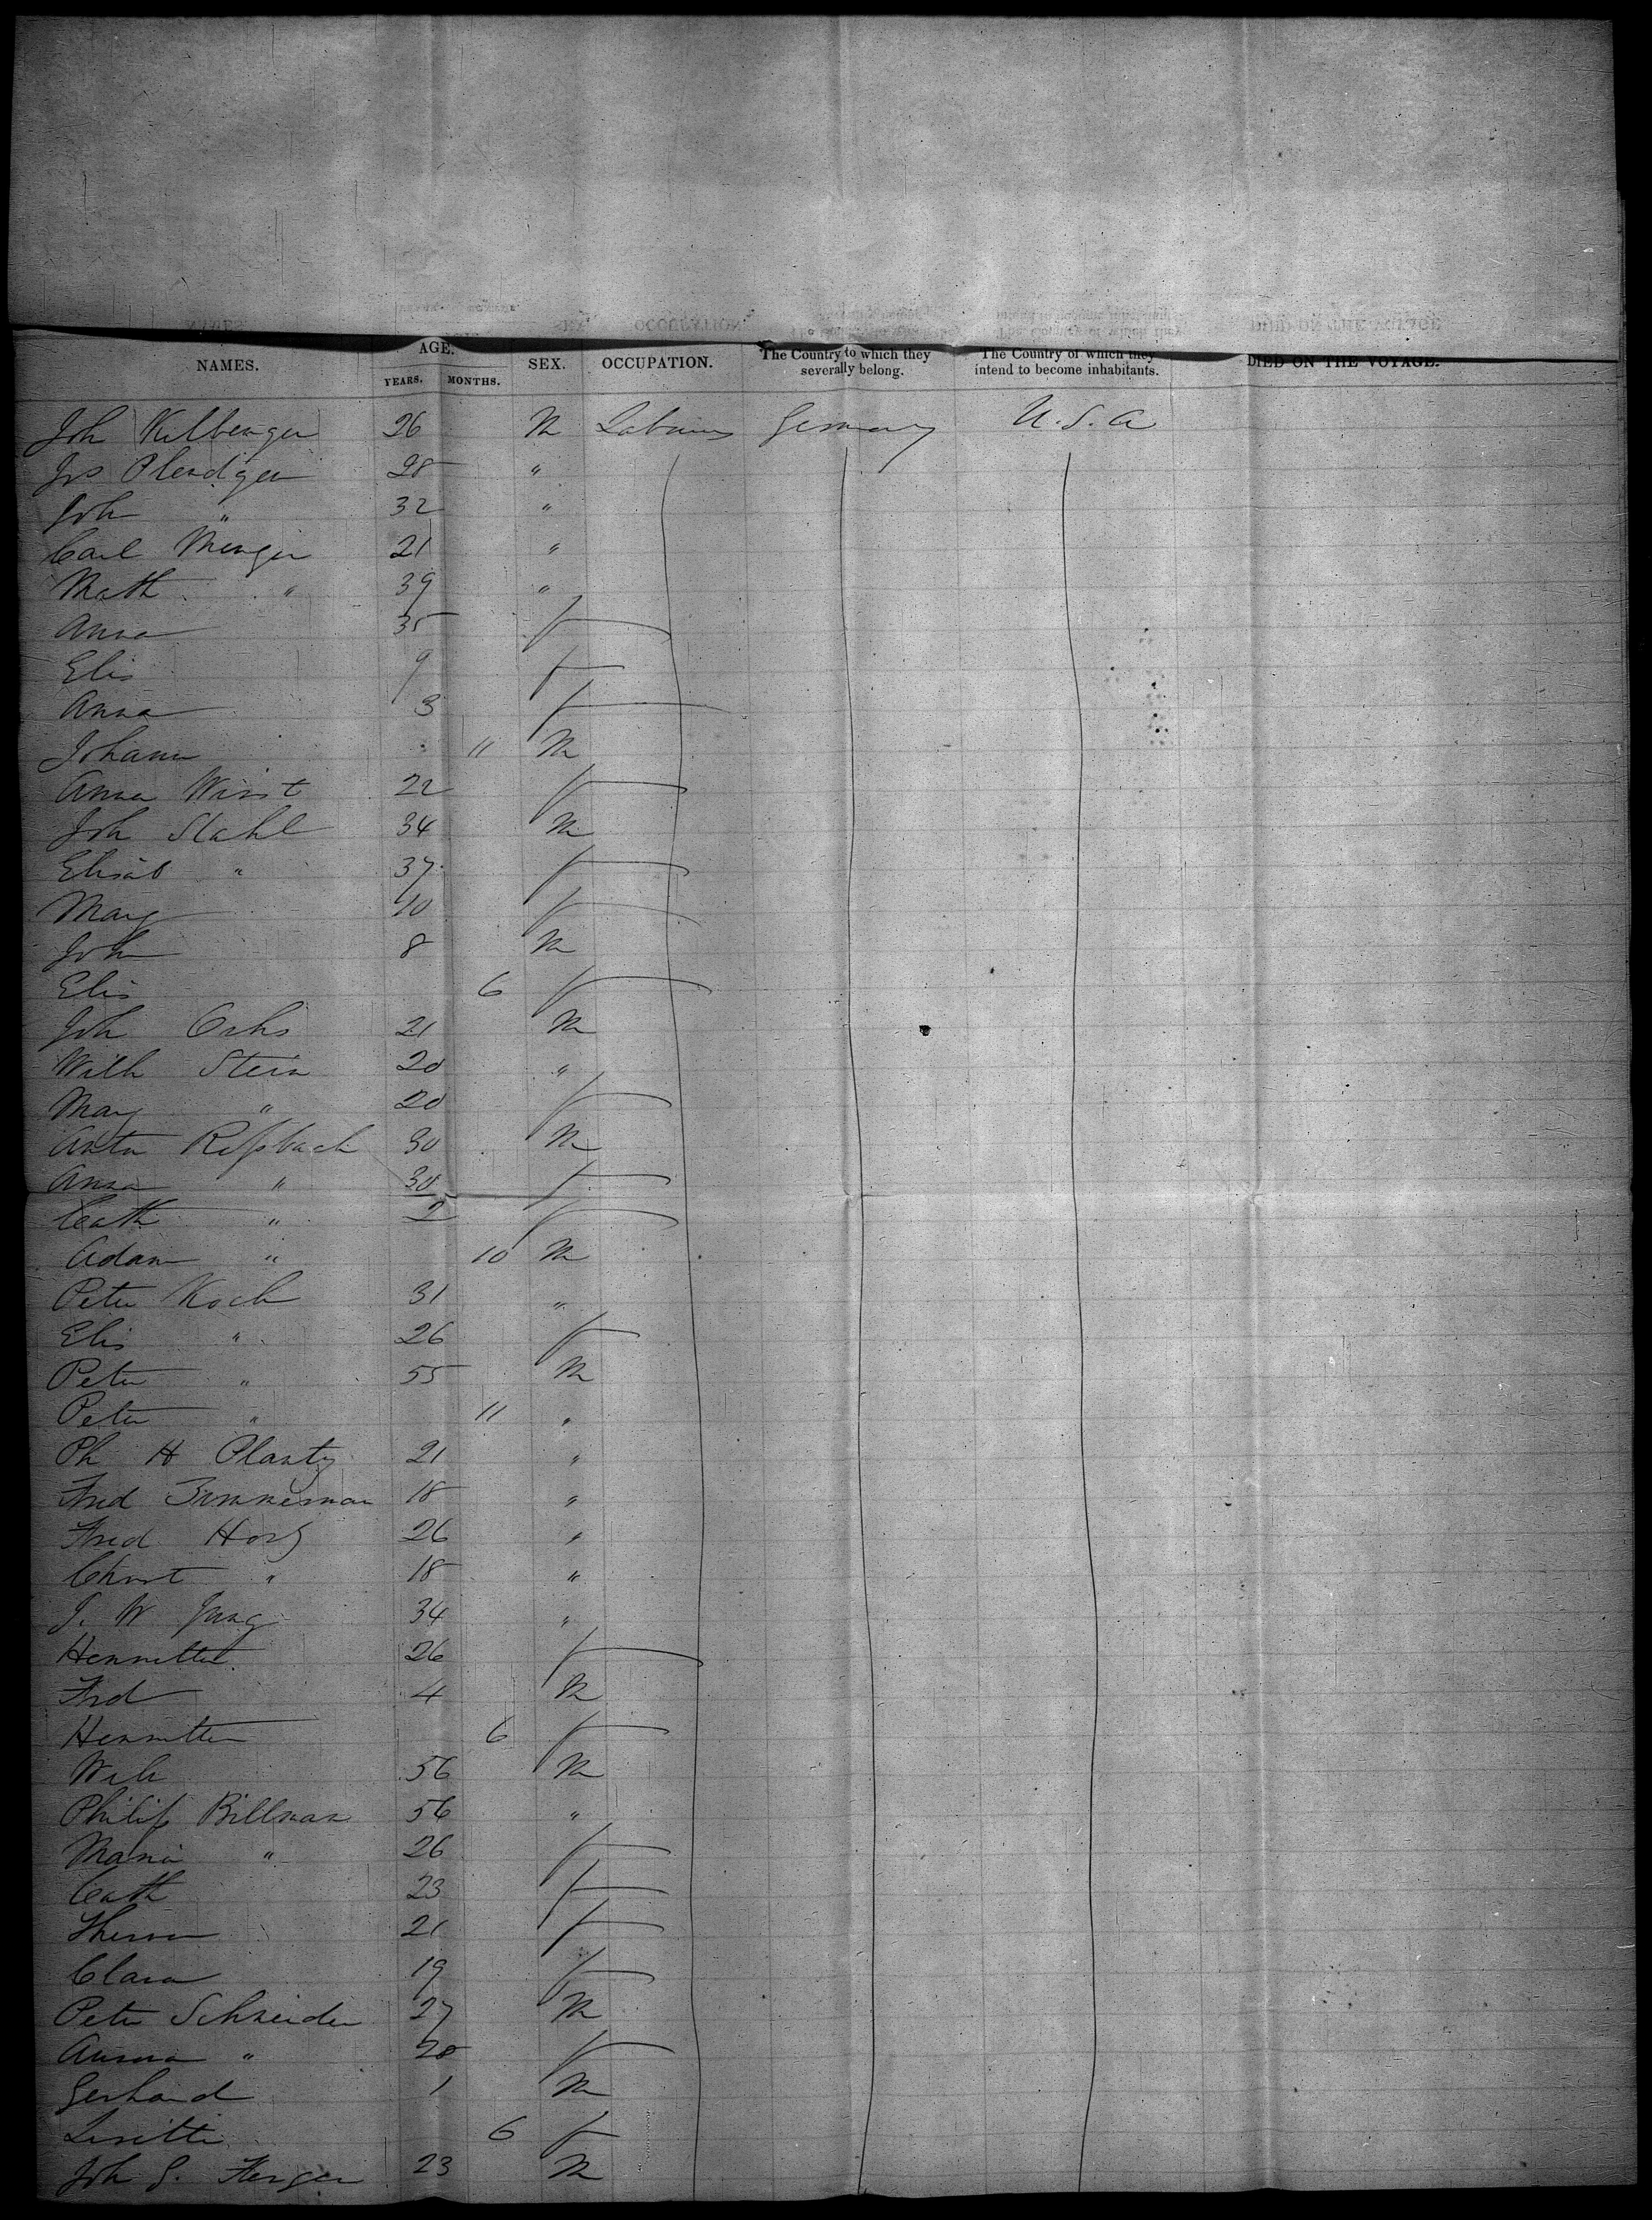 NAMES. AGE. SEX. OCCUPATION. The Country to which they severally belong. The Country of which they intend to become inhabitants. DIED ON THE VOYAGE.
YEARS. MONTHS.
Joh 26 M Germany U.S.A
Jos 28 "
Joh " 32 "
Carl Menger 21 "
Math " 39 "
Anna 35 f
Elis 9 f
Anna 3 f
Johann 11 M
Anna Wirst 22 f
Joh Stahl 34 M
Elisab " 37 f
Marg 10 f
Joh 8 M
Elis 6 f
Joh Ochs 21 M
Wilh Stein 20 "
Marg " 20 f
Anton Roßbach 30 M
Anna " 30 f
Cath " 2 f
Adam " 10 M
Peter Koch 31 "
Elis " 26 f
Peter " 55 M
Peter " 11 "
Ph H Plantz 21 "
Fred Zimmerman 18 "
Fred 26 "
Christ " 18 "
J. W Jung 34 "
Henriette 26 f
Frd 4 M
Henriette 6 f
Wilh 56 M
Philip Billman 56 "
Maria " 26 f
Cath 23 f
21 f
Clara 19 f
Peter Schneider 27 M
" 28 f
Gerhard 1 M
Lisette 6 f
Joh 23 M